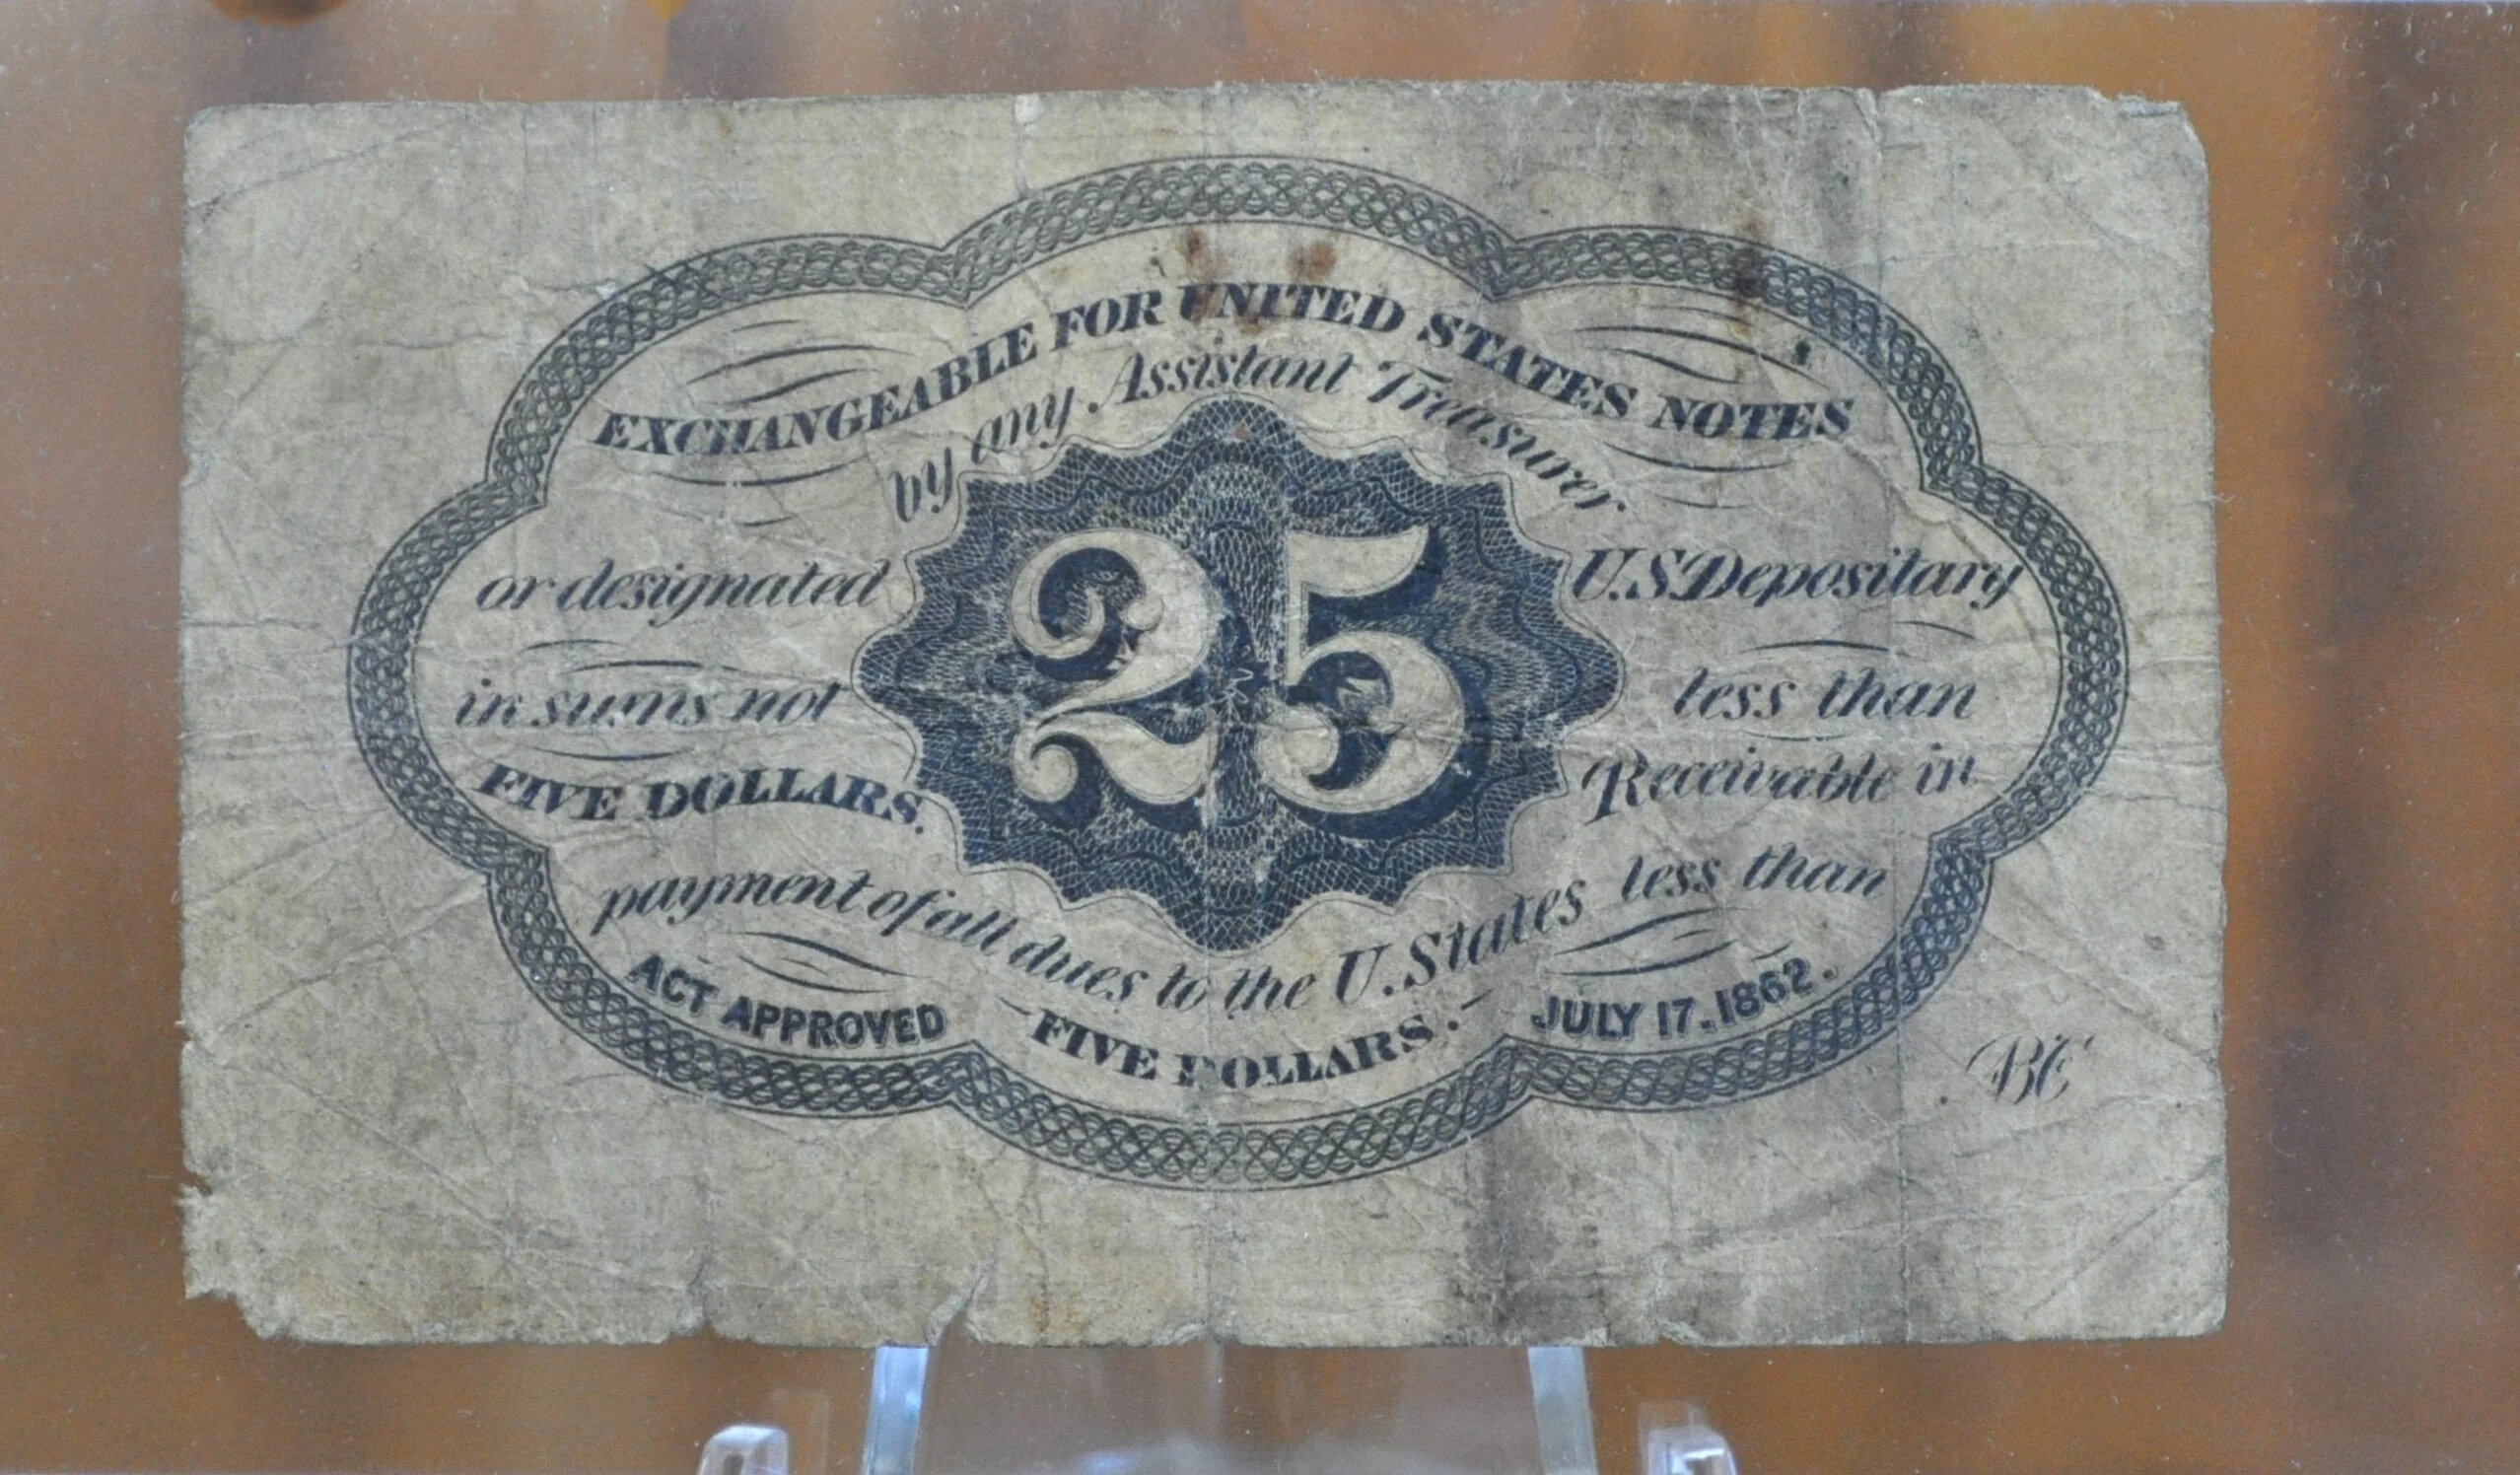 EXCHANGEABLE FOR UNITED STATES NOTES
by any Assistant Treasurer.
or designated U.S. Depositary
in sums not less than
FIVE DOLLARS. Receivable in
25
payment of all dues to the U. States less than
FIVE DOLLARS.
ACT APPROVED JULY 17. 1862.